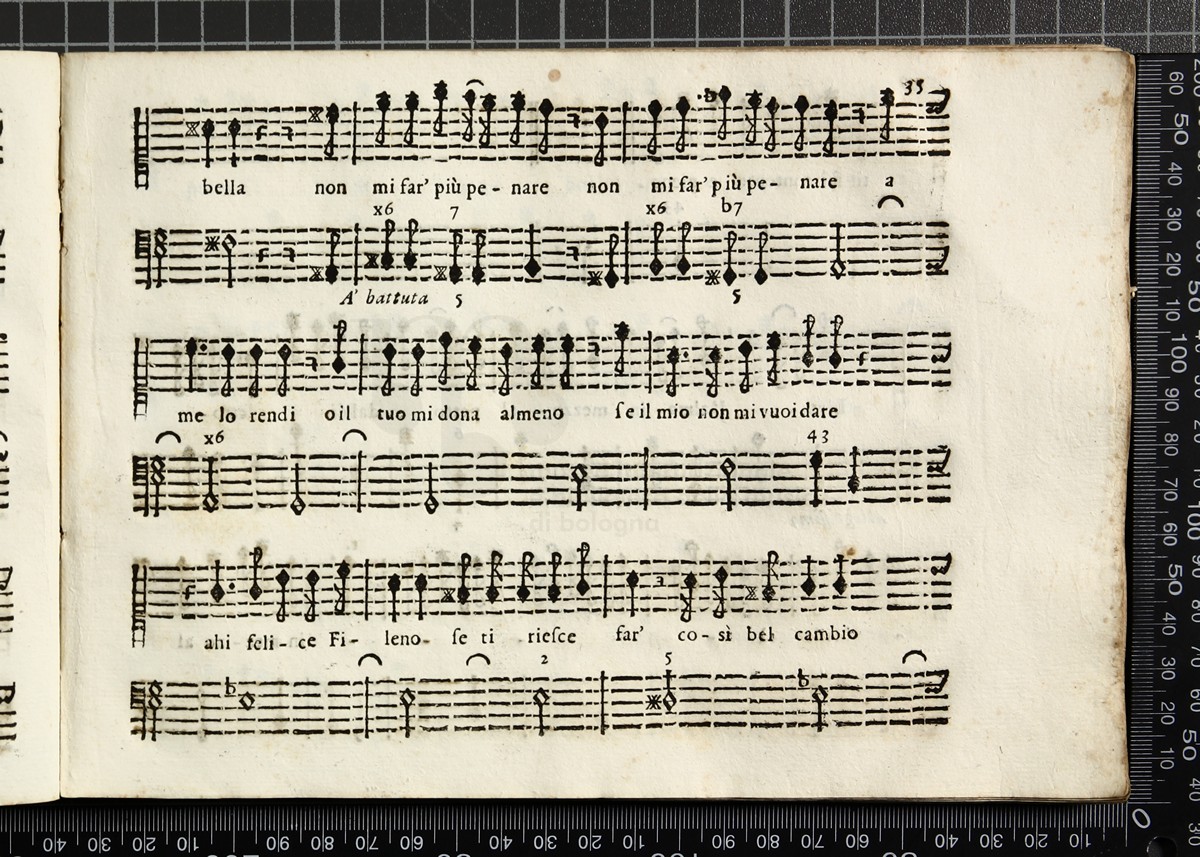 35
bella non mi far' più pe - nare non mi far' più pe - nare a
x6 7 x6 b7
A' battuta 5 5
me lo rendi o il tuo mi dona almeno ſe il mio non mi vuoi dare
x6 4 3
di bologna
ahi feli - ce Fi - leno - ſe ti rieſce far' co - sì bel cambio
2 5